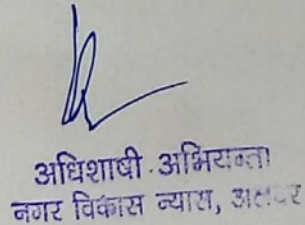 अधिशाषी अभियन्ता
नगर विकास न्यास, अलवर